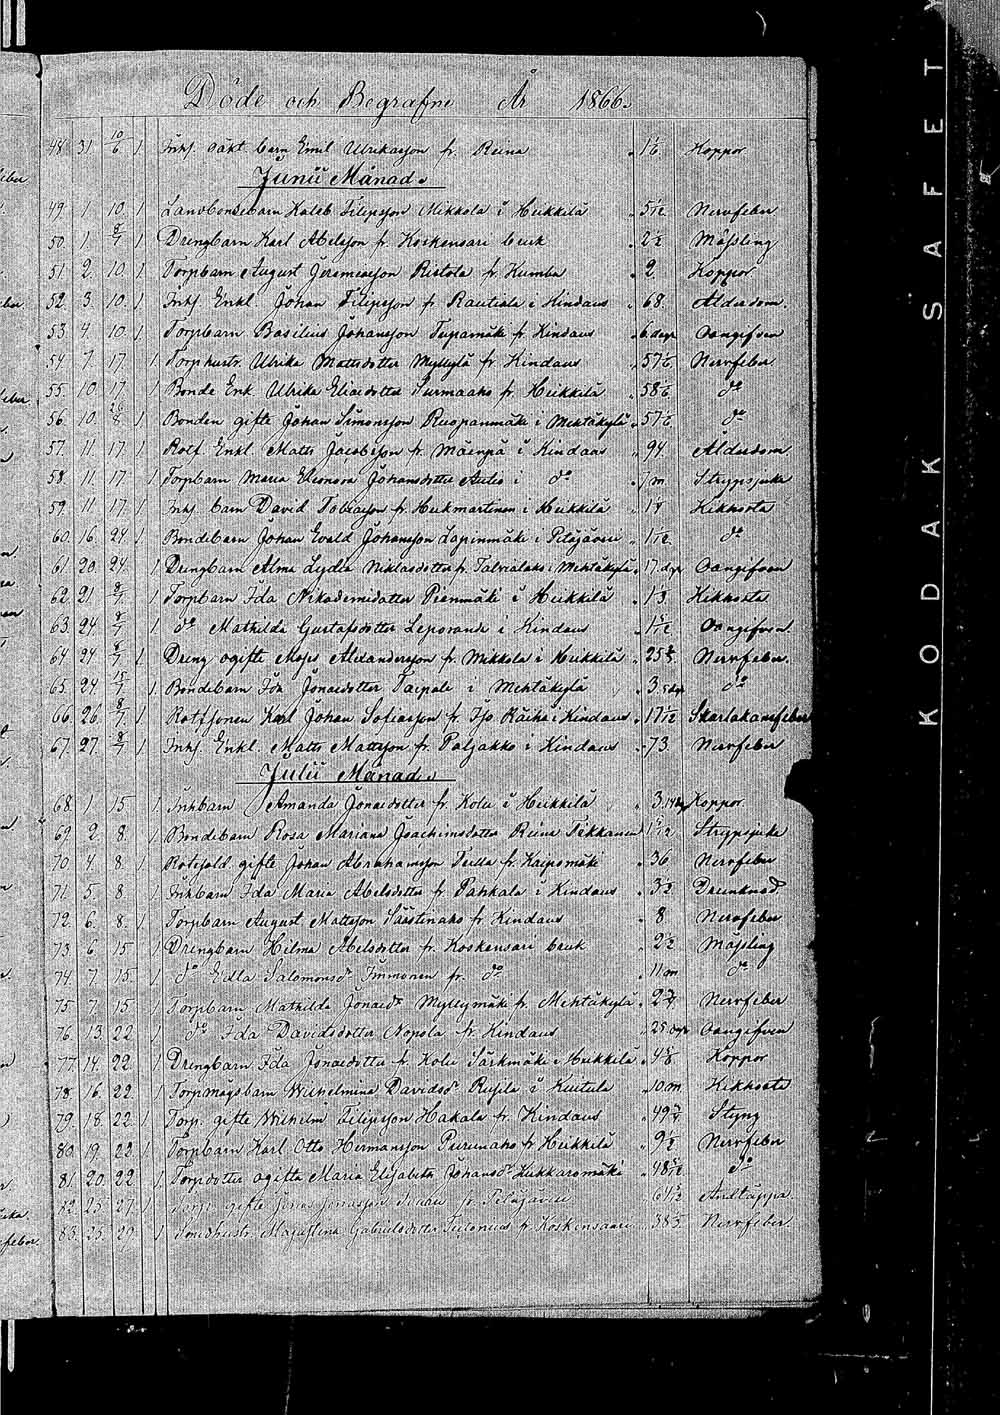 Döde och Begrafne År 1866.
48. 31. 10/6. 1. Inhs. oäkt barn Emil Ulrikasson fr. Reina " 1 1/6. Koppor
Junii Månad.
49. 1. 10. 1. Landbondebarn Kaleb Filipsson Mikkola i Heikkilä " 5 1/12. Nervfeber
50. 1. 8/7. 1. Drengbarn Karl Abelsson fr. Koskensari bruk " 2 1/2 Mässling
51. 2. 10. 1. Torpbarn August Jeremiasson Ristola fr. Humba " 2. Koppor
52. 3. 10. 1. Inhs. Enkl. Johan Filipsson fr Rautiala i Kindaus " 68. Ålderdom.
53. 4. 10. 1. Torpbarn Basilius Johansson fr. Kindaus " 6 dagr Oangifven
54. 7. 17. 1. Torphustr. Ulrika Mattsdotter Myllylä fr. Kindaus " 57 1/6. Nervfeber
55. 10. 17. 1. Bonde Enk. Ulrika Eliaedotter Surmaaho fr. Heikkilä " 58 do
56. 10. 26/8 1. Bonden gifte Johan Simonsson Ruopanmäki i Mehtäkylä " 57 do
57. 11. 17. 1. Rotf. Enkl. Matts Jacobsson fr. Mäenpä i Kindaus " 94. Ålderdom
58. 11. 17. 1. Torpbarn Maria Eleonora Johansdotter Aulio i do " 7 m Strypsjuka
59. 11. 17. 1. Inhs. barn David Tobiasson fr. Heikmartinen i Heikkilä " 1 1/4 Kikhosta
60. 16. 24. 1. Bondebarn Johan Evald Johansson Lapinmäki i Pitäjävesi " 1 1/12. do
61. 20. 24. 1. Drengbarn Alma Lydia Niklasdotter fr. Talvialaks i Mehtäkylä " 17. dgr Oangifven
62. 21. 8/7. 1. Torpbarn Ida Nikodemidotter Pienmäki i Heikkilä " 1 Kikhosta
63. 24. 8/7 1. do Mathilda Gustafsdotter Leporanda i Kindaus " 1 Oangifven.
64 24 8/7 1. Dreng ogifte Moses Alexandersson fr. Mikkola i Heikkilä " 25 Nervfeber.
65. 24. 15/7. 1. Bondebarn Ida Jonaedotter Taipale i Mehtäkylä " 3. do
66. 26. 8/7. 1. Rotfsonen Karl Johan Sofiasson fr. Iso Räihä i Kindaus " 17 1/12 Skarlakansfeber
67. 27. 8/7 1. Inhs. Enkl. Matts Mattsson fr. Paljakko i Kindaus " 73. Nervfeber
Julii Månad.
68. 1. 15. 1. Inhbarn Amanda Jonaedotter fr. Kolu i Heikkilä " 3. Koppor.
69. 2. 8. 1. Bondebarn Rosa Mariana Joachimsdotter Reina Tikkanen Strypsjuka
70 4 8. 1. Rotesold gifte Johan Abrahamsson Teilla fr. Kaipomäki " 36 Nervfeber
71. 5. 8 1. Inhbarn Ida Maria Abelsdotter fr Pahkala i Kindaus " 3 1/2 Drunknad
72. 6. 8. 1. Torpbarn August Mattsson Säästinaho fr Kindaus " 8 Nervfeber
73 6 15 1. Drengbarn Hilma Abelsdotter fr. Koskensari bruk " 2 1/2 Mässling
74. 7. 15. 1. do Edla Salomonsdr Immonen fr. do " 11 m do
75. 7. 15 1. Torpbarn Mathilda Jonaedr Myllymäki fr. Mehtäkylä " 2 3/4 Nervfeber
76. 13. 22 1. do Ida Davidsdotter Nopola fr. Kindaus " 25 dgr Oangifven
77. 14. 22. 1. Drengbarn Ida Jonaedotter fr. Kolu Särkmäki i Heikkilä " 4 Koppor
78. 16. 22. 1. Torpmågsbarn Wilhelmina Davidsdr Rusila i Kuitula " 10 m Kikhosta
79. 18. 22. 1. Torp. gifte Wilhelm Filipsson Hakala fr. Kindaus " 49 3/4 Styng
80. 19. 22. 1. Torpbarn Karl Otto Hermansson Peurunaho fr Heikkilä " 9 1/2 Nervfeber
81. 20. 22. 1. Torpdotter ogifta Maria Elisabeth Johansdr Kukkaromäki " 48 do
82. 25. 27. 1. Torp. gifte Jonas Jonasson fr. Pitäjävesi 61 Andtäppa
83. 25. 29. 1. Smedhustr. Maja Stina Gabrielsdotter fr Koskensaari 38 Nervfeber.
KODAK SAFETY